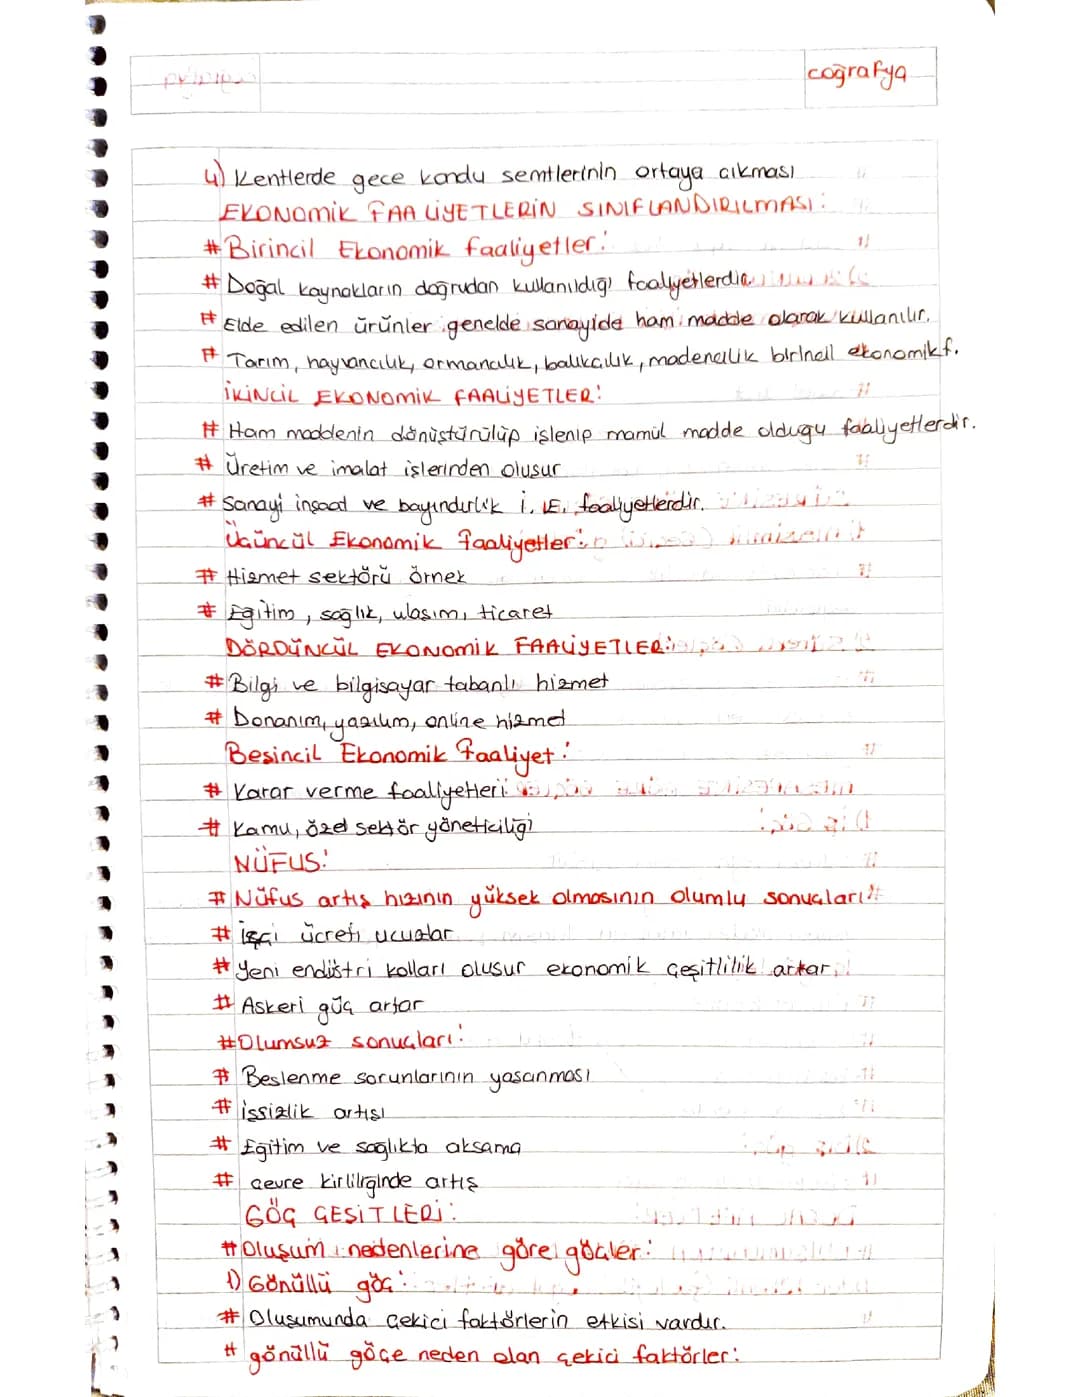 coğrafya
4) Kentlerde gece kondu semtlerinin ortaya çıkması
EKONOMİK FAALİYETLERİN SINIFLANDIRILMASI:
# Birincil Ekonomik faaliyetler:
# Doğal kaynakların doğrudan kullanıldığı faaliyetlerdir
# Elde edilen ürünler genelde sanayide ham madde olarak kullanılır.
# Tarım, hayvancılık, ormancılık, balıkçılık, madencilik birincil ekonomik f.
İKİNCİL EKONOMİK FAALİYETLER:
# Ham maddenin dönüştürülüp işlenip mamül madde olduğu faaliyetlerdir.
# Üretim ve imalat işlerinden oluşur
# Sanayi inşaat ve bayındırlık i. E. faaliyetlerdir.
Üçüncül Ekonomik Faaliyetler:
# Hizmet sektörü örnek
# Eğitim, sağlık, ulaşım, ticaret
DÖRDÜNCÜL EKONOMİK FAALİYETLER:
# Bilgi ve bilgisayar tabanlı hizmet
# Donanım, yazılım, online hizmet
Beşincil Ekonomik Faaliyet:
# Karar verme faaliyetleri
# Kamu, özel sektör yöneticiliği
NÜFUS:
# Nüfus artış hızının yüksek olmasının olumlu sonuçları:
# İşçi ücreti ucuzlar
# Yeni endüstri kolları oluşur ekonomik çeşitlilik artar.
# Askeri güç artar
# Olumsuz sonuçları:
# Beslenme sorunlarının yaşanması
# işsizlik artışı
# Eğitim ve sağlıkta aksama
# çevre kirlilrğinde artış
GÖÇ ÇEŞİTLERİ:
# Oluşum nedenlerine göre göçler:
1) Gönüllü göç:
# Oluşumunda çekici faktörlerin etkisi vardır.
# gönüllü göçe neden olan çekici faktörler: